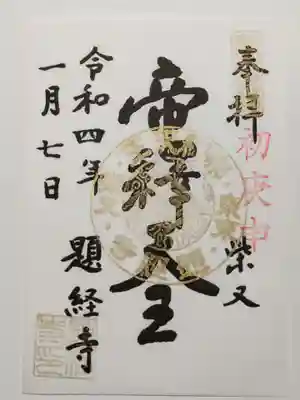 奉拝
初庚申
柴又
帝釋天王
題経寺
令和四年
一月七日